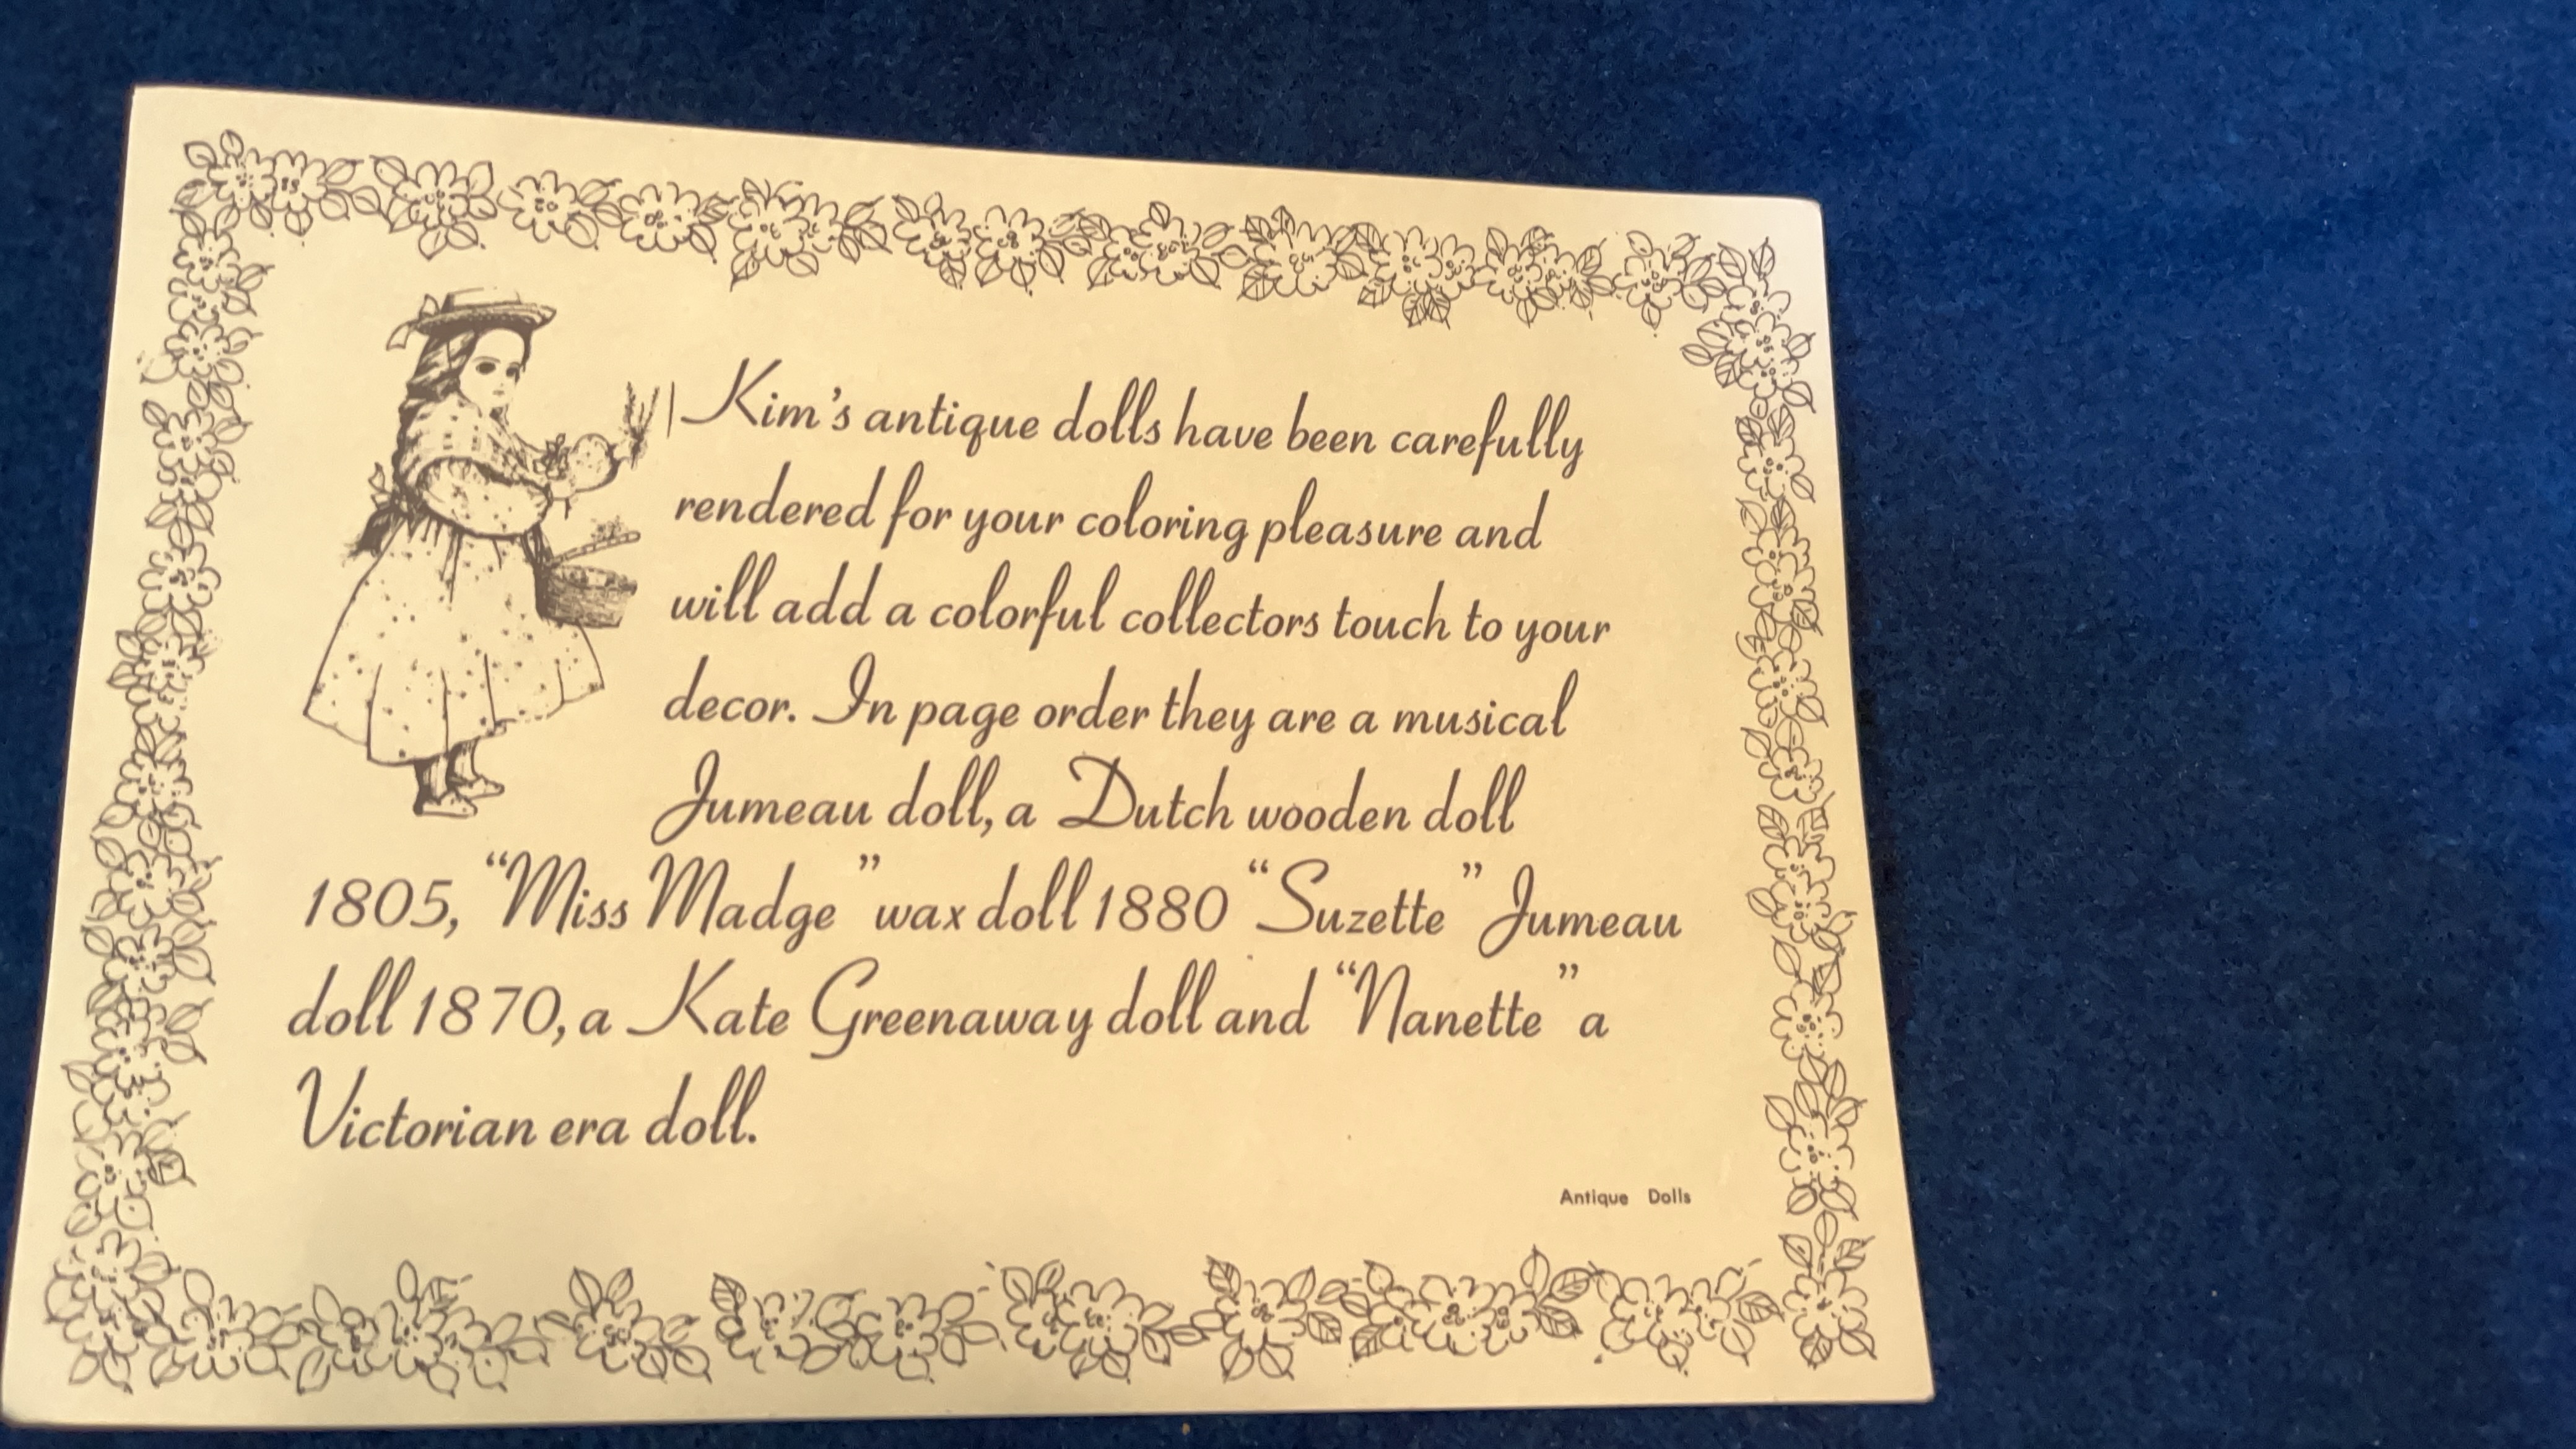 Kim's antique dolls have been carefully
rendered for your coloring pleasure and
will add a colorful collectors touch to your
decor. In page order they are a musical
Jumeau doll, a Dutch wooden doll
1805, “Miss Madge” wax doll 1880 “Suzette” Jumeau
doll 1870, a Kate Greenaway doll and “Nanette” a
Victorian era doll.
Antique Dolls